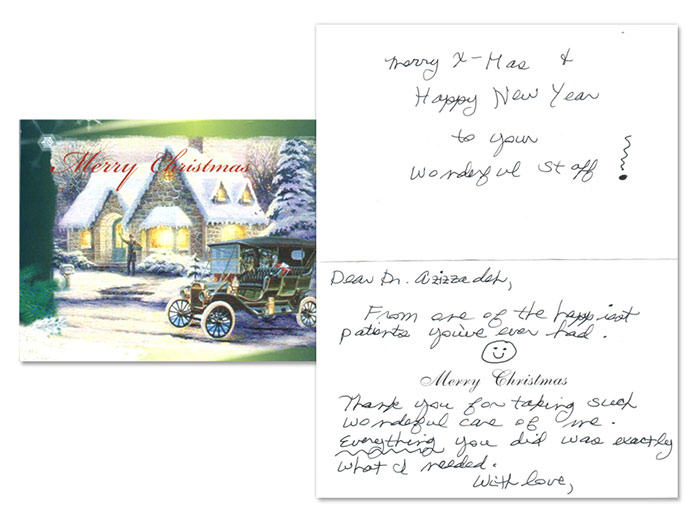 Merry Christmas
Merry X-Mas &
Happy New Year
to your
wonderful staff!
Dear Dr. Azizzadeh,
From one of the happiest
patients you've ever had.
Merry Christmas
Thank you for taking such
wonderful care of me.
Everything you did was exactly
what I needed.
With love,